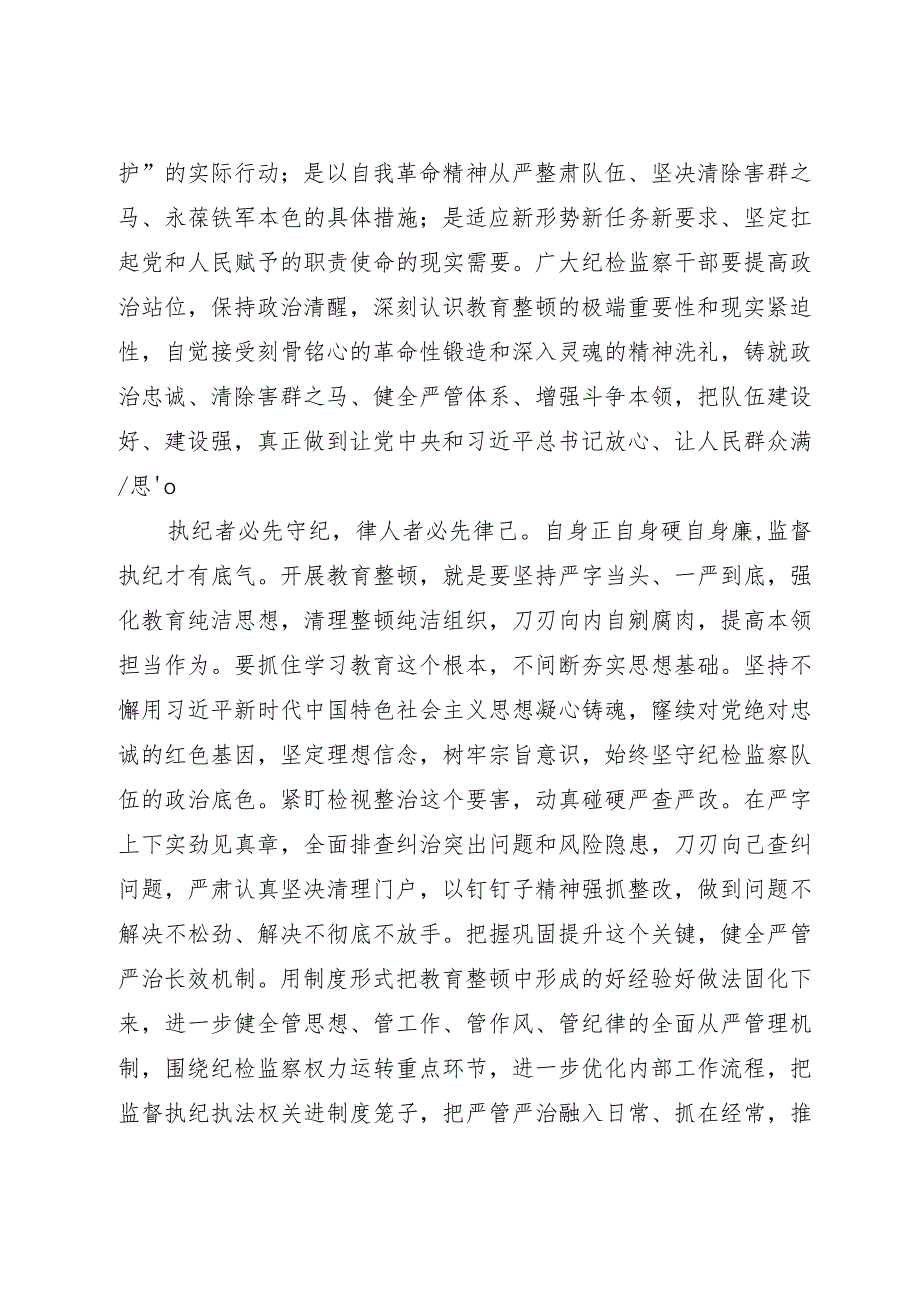 护”的实际行动；是以自我革命精神从严整肃队伍、坚决清除害群之
马、永葆铁军本色的具体措施；是适应新形势新任务新要求、坚定扛
起党和人民赋予的职责使命的现实需要。广大纪检监察干部要提高政
治站位，保持政治清醒，深刻认识教育整顿的极端重要性和现实紧迫
性，自觉接受刻骨铭心的革命性锻造和深入灵魂的精神洗礼，铸就政
治忠诚、清除害群之马、健全严管体系、增强斗争本领，把队伍建设
好、建设强，真正做到让党中央和习近平总书记放心、让人民群众满
/思'o
执纪者必先守纪，律人者必先律己。自身正自身硬自身廉,监督
执纪才有底气。开展教育整顿，就是要坚持严字当头、一严到底，强
化教育纯洁思想，清理整顿纯洁组织，刀刃向内自剜腐肉，提高本领
担当作为。要抓住学习教育这个根本，不间断夯实思想基础。坚持不
懈用习近平新时代中国特色社会主义思想凝心铸魂，窿续对党绝对忠
诚的红色基因，坚定理想信念，树牢宗旨意识，始终坚守纪检监察队
伍的政治底色。紧盯检视整治这个要害，动真碰硬严查严改。在严字
上下实劲见真章，全面排查纠治突出问题和风险隐患，刀刃向己查纠
问题，严肃认真坚决清理门户，以钉钉子精神强抓整改，做到问题不
解决不松劲、解决不彻底不放手。把握巩固提升这个关键，健全严管
严治长效机制。用制度形式把教育整顿中形成的好经验好做法固化下
来，进一步健全管思想、管工作、管作风、管纪律的全面从严管理机
制，围绕纪检监察权力运转重点环节，进一步优化内部工作流程，把
监督执纪执法权关进制度笼子，把严管严治融入日常、抓在经常，推